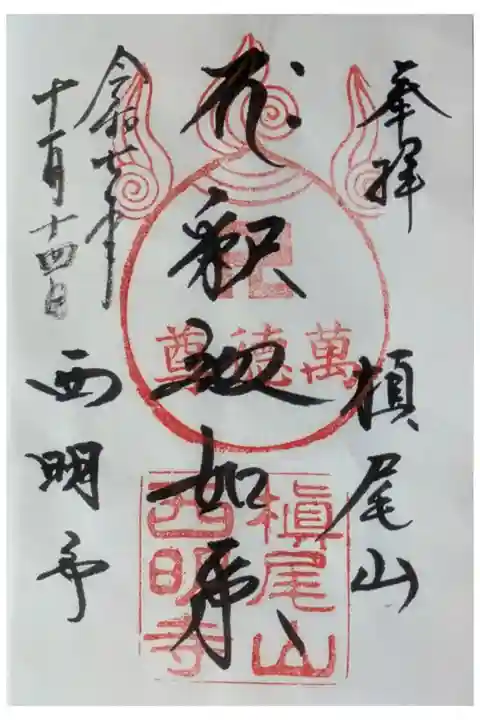 奉拝
槇尾山
釈迦如来
令和七年
十一月十四日
西明寺
卍
萬徳尊
槇尾山
西明寺